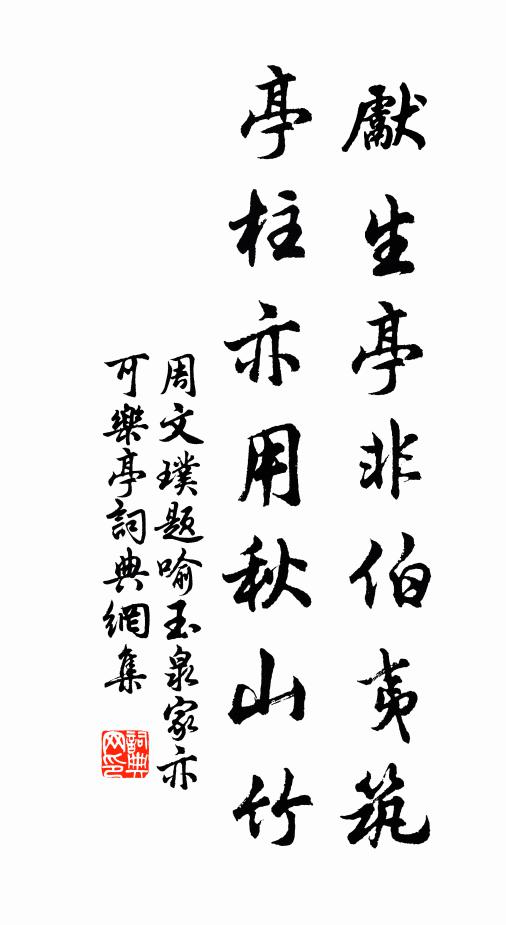 獻生亭非伯夷筑
亭柱亦用秋山竹
周文璞題喻玉泉家亦
可樂亭詞典網集
詞典網印